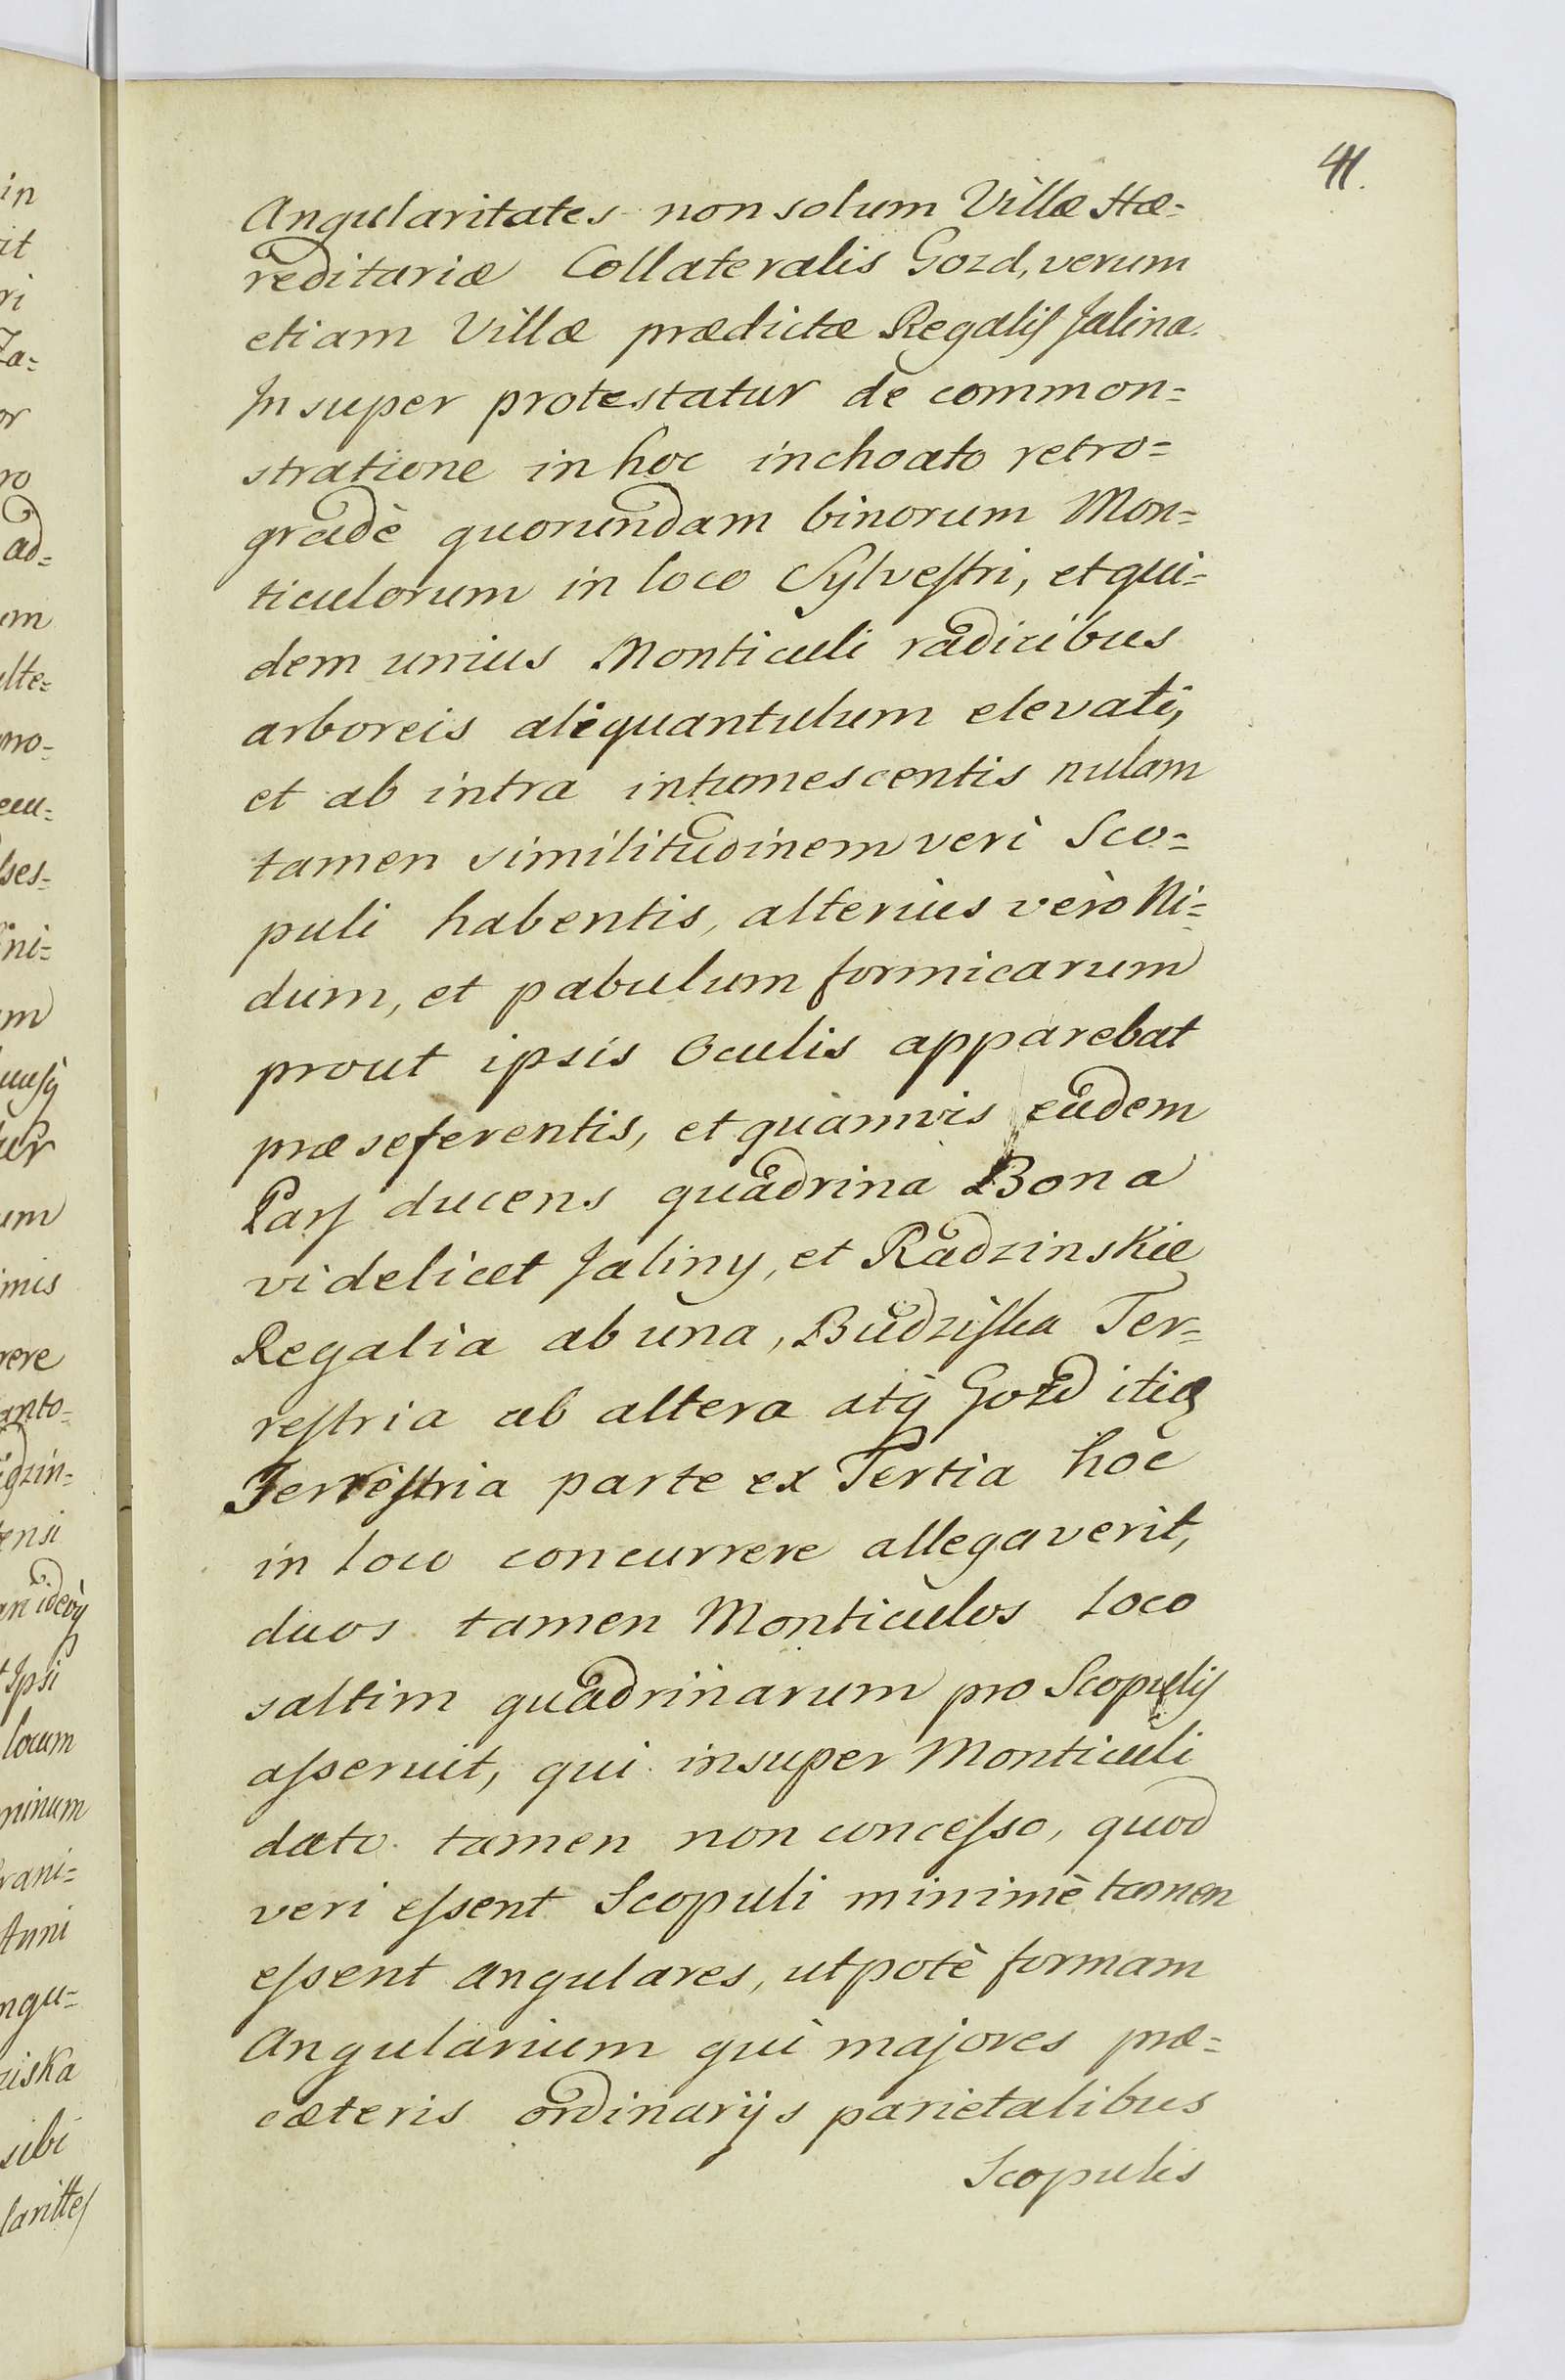 41.
Angularitates non solum Villæ Hæ=
reditariæ Collateralis Gozd, verum
etiam Villæ prædictæ Regaliſ Jalina.
Insuper protestatur de common=
stratione in hoc inchoato retro=
gradè quorundam binorum Mon=
ticulorum in loco Sylveſtri, et qui=
dem unius Monticuli radicibus
arboreis aliquantulum elevati,
et ab intra intumescentis nulam
tamen similitudinem veri Sco=
puli habentis, alterius verò Ni=
dum, et pabulum formicarum
prout ipsis Oculis apparebat
præseferentis, et quamvis eadem
Parſ ducens quadrina Bona
videlicet Jaliny, et Radzinskie
Regalia ab una, Budziſka Ter=
reſtria ab altera atq̃ Gozd itiē
Terreſtria parte ex Tertia hoc
in loco concurrere allegaverit,
duos tamen Monticulos loco
saltim quadrinarum pro Scopuliſ
aſseruit, qui insuper Monticuli
dato tamen non conceſso, quod
veri eſsent Scopuli minimè tamen
eſsent angulares, utpotè formam
Angularium qui majores præ=
cæteris ordinarijs parietalibus
Scopulis
in
it
ri
Za=
or
ro
ad=
um
ulte=
ses=
ini=
um
um
imis
rere
anto=
dzin=
ensi
Ipsi
locum
minum
rani=
Anni
ngu=
ziska
sibi